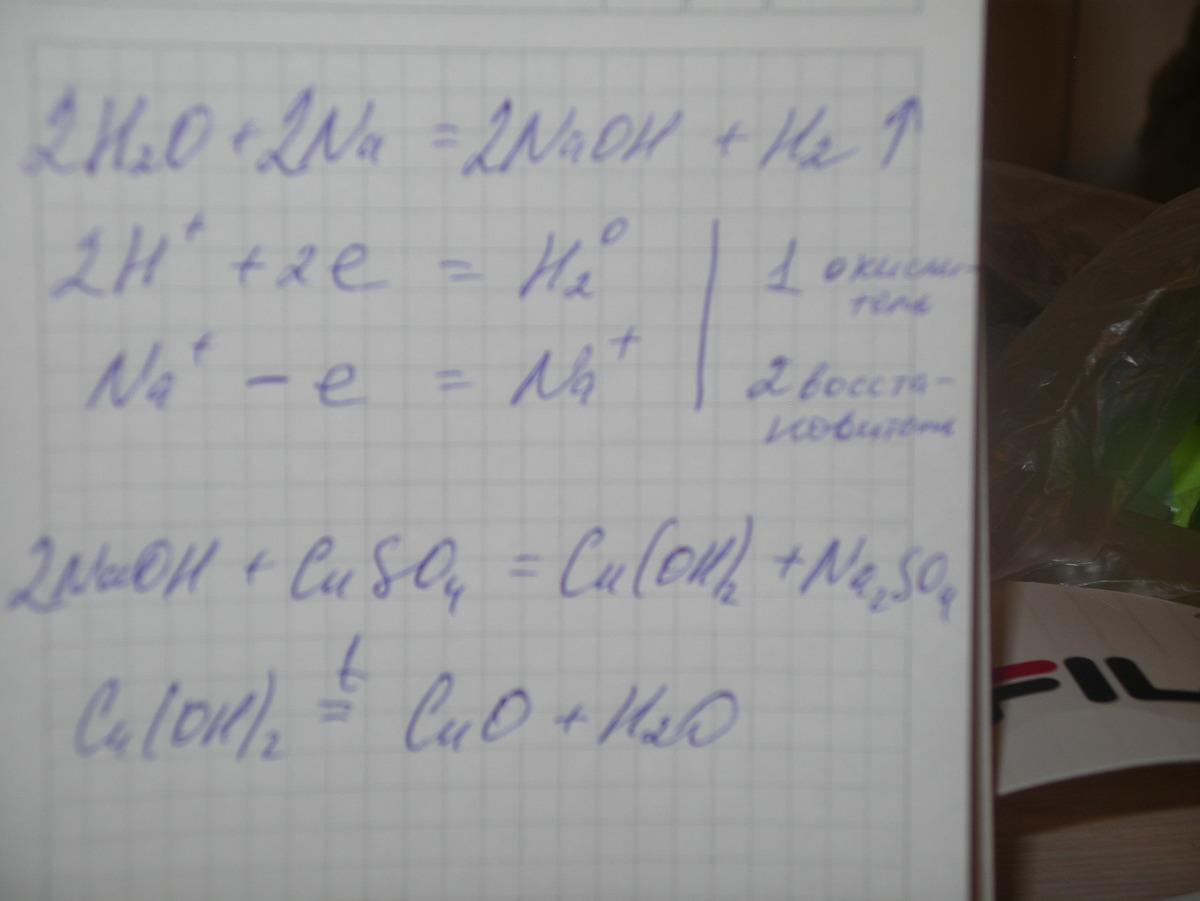 2H₂O + 2Na = 2NaOH + H₂ ↑
2H⁺ + 2e = H₂⁰ | 1 окисли-
тель
Na⁺ - e = Na⁺ | 2 восста-
новитель
2NaOH + CuSO₄ = Cu(OH)₂ + Na₂SO₄
Cu(OH)₂ =ᵗ CuO + H₂O
FIL